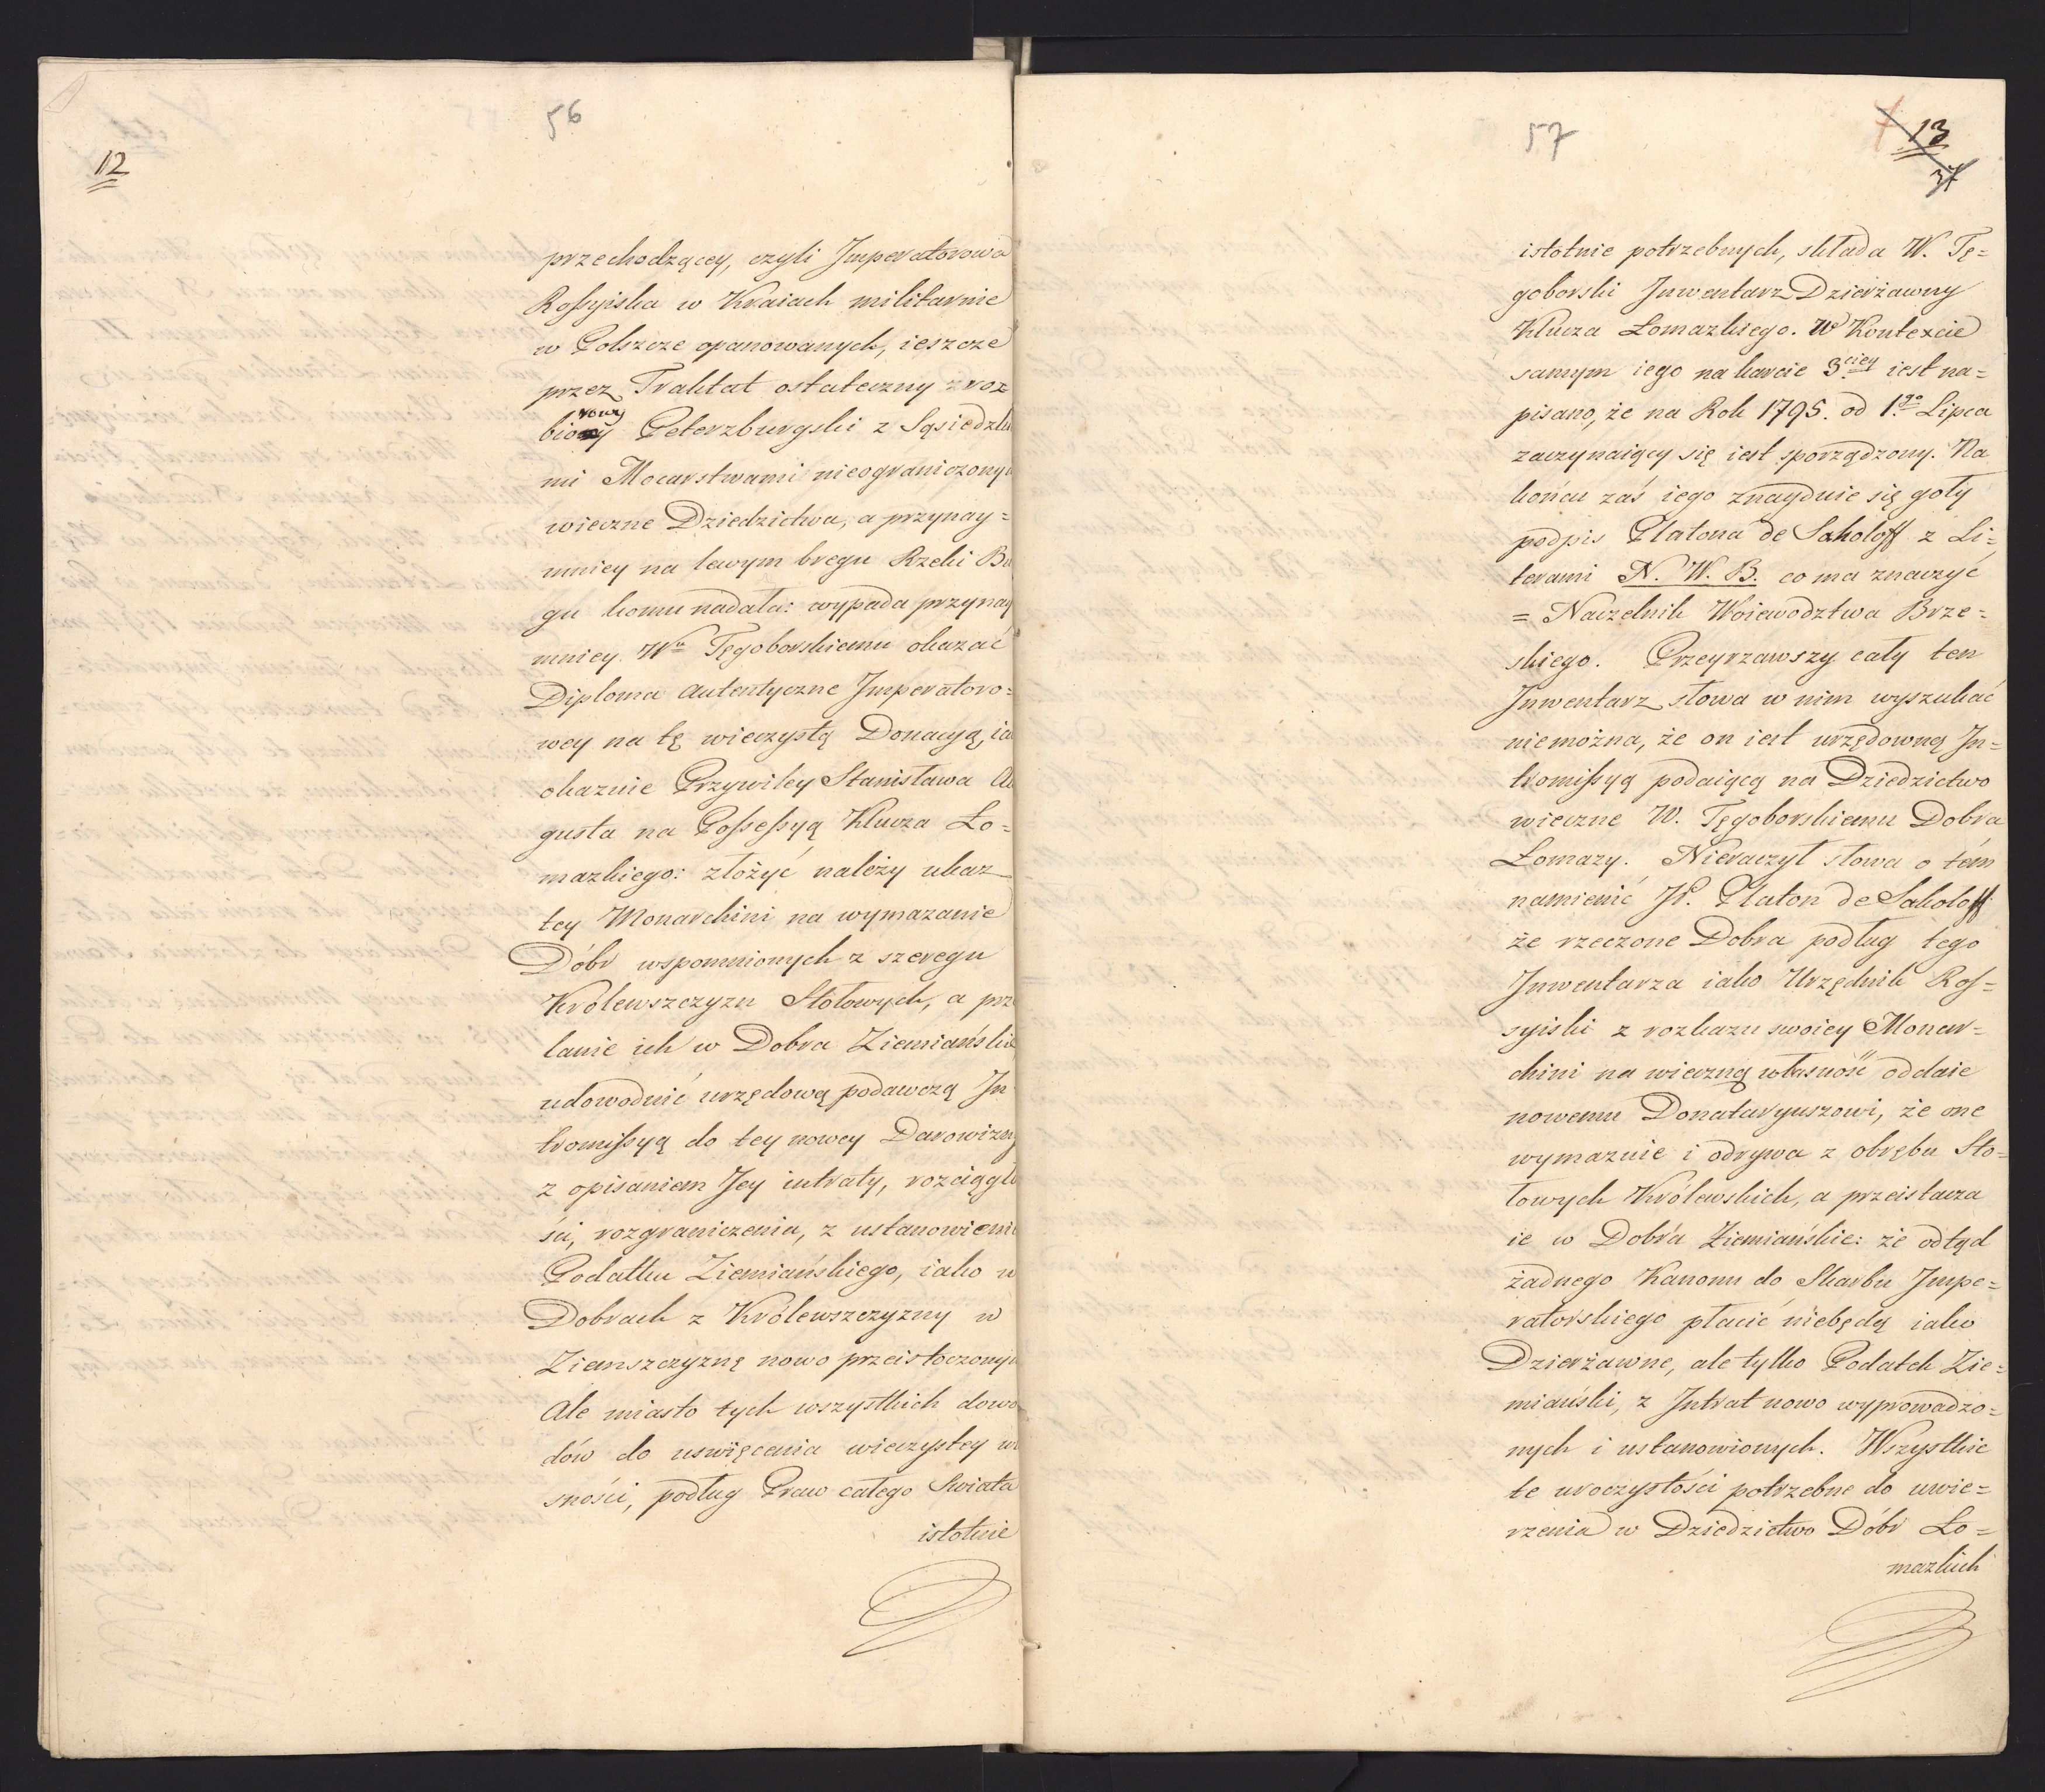 56
12
przechodzącey, czyli Imperatorowa
Roſsyiska w Kraiach militarnie
w Polszcze opanowanych, ieszcze
przez Traktat ostateczny zroz
biorowy Peterzburgski z Sąsiedzki
mi Mocarstwami nieograniczonym
wieczne Dziedzictwa, a przynay=
mniey na lewym bregu Rzeki Bu
gu komu nadała: wypada przynay
mniey Wu Tęgoborskiemu okazać
Diploma autentyczne Imperatoro=
wey na tę wieczystą Donacyą, ia
okazuie Przywiley Stanisława Au
gusta na Poſseſsyą Klucza Ło=
mazkiego: złożyć należy ukaz
tey Monarchini na wymazanie
Dóbr wspomnionych z szeregu
Królewszczyzn Stołowych, a prze
lanie ich w Dobra Ziemiańskie
udowodnić urzędową podawczą In
tromiſsyą do tey nowey Darowizny
z opisaniem Jey intraty, rozciągło
ści, rozgraniczenia, z ustanowieni
Podatku Ziemiańskiego, iako w
Dobrach z Królewszczyzny w
Ziemszczyznę nowo przeistoczonych
Ale miasto tych wszystkich dowo
dów do uswięcenia wieczystey wł
sności, podług Praw całego Swiata
istotnie
57
13
37
istotnie potrzebnych, składa W. Tę=
goborski Inwentarz Dzierżawny
Klucza Łomazkiego. W Kontexcie
samym iego na karcie 3ciey iest na=
pisano, że na Rok 1795. od 1go Lipca
zaczynaiący się iest sporządzony. Na
końcu zaś iego znayduie się goły
podpis Platona de Sakoloff z Li=
terami N. W. B. co ma znaczyć
= Naczelnik Woiewodztwa Brze=
skiego. Przeyrzawszy cały ten
Inwentarz słowa w nim wyszukać
niemożna, że on iest urzędowną In=
tromiſsyą podaiącą na Dziedzictwo
wieczne W. Tęgoborskiemu Dobra
Łomazy. Nieraczył słowa o tém
namienić JP. Platon de Sakoloff
że rzeczone Dobra podług tego
Inwentarza iako Urzędnik Roſ=
syiski z rozkazu swoiey Monar=
chini na wieczną własność oddaie
nowemu Donataryuszowi, że one
wymazuie i odrywa z obrębu Sto=
łowych Królewskich, a przeistacza
ie w Dobra Ziemiańskie: że odtąd
żadnego Kanonu do Skarbu Impe=
ratorskiego płacić niebędą iako
Dzierżawne, ale tylko Podatek Zie=
miański, z Intrat nowo wyprowadzo=
nych i ustanowionych. Wszystkie
te uroczystości potrzebne do uwie=
rzenia w Dziedzictwo Dóbr Ło=
mazkich